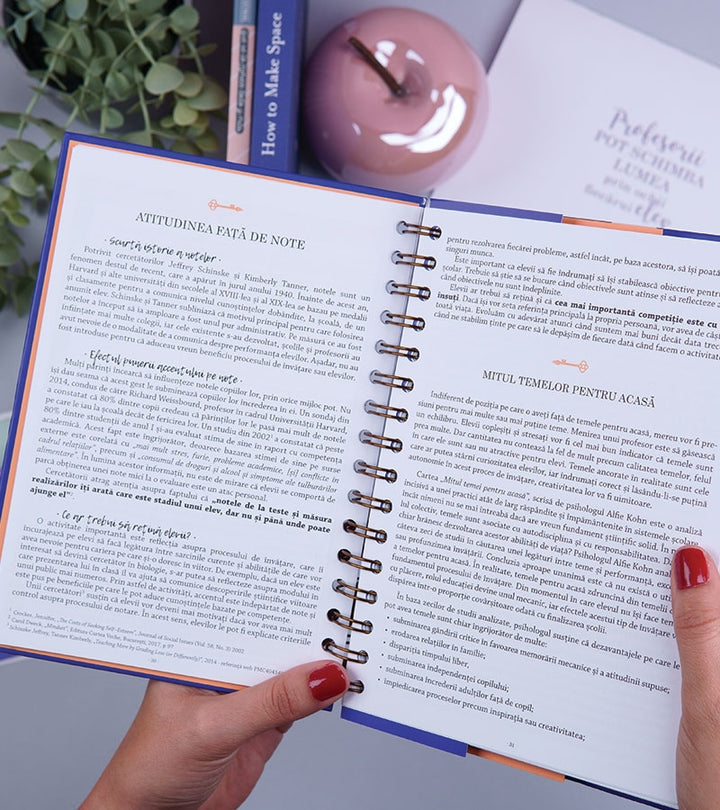 How to Make Space
Profesorii
POT SCHIMBA
LUMEA
prin ochii
fiecărui elev
ATITUDINEA FAȚĂ DE NOTE
· Scurtă istorie a notelor ·
Potrivit cercetătorilor Jeffrey Schinske și Kimberly Tanner, notele sunt un
fenomen destul de recent, care a apărut în jurul anului 1940. Înainte de acest an,
Harvard și alte universități din secolele al XVIII-lea și al XIX-lea se bazau pe medalii
și clasamente pentru a comunica nivelul cunoștințelor dobândite, la școală, de un
anumit elev. Schinske și Tanner subliniază că motivul principal pentru care folosirea
notelor a început să ia amploare a fost unul pur administrativ. Pe măsură ce au fost
înființate mai multe colegii, iar cele existente s-au dezvoltat, școlile și profesorii au
avut nevoie de o modalitate de a comunica despre performanța elevilor. Așadar, nu au
fost introduse pentru că aduceau vreun beneficiu procesului de învățare sau elevilor.
· Efectul punerii accentului pe note ·
Mulți părinți încearcă să influențeze notele copiilor lor, prin orice mijloc pot. Nu
își dau seama că acest gest le subminează copiilor lor încrederea în ei. Un sondaj din
2014, condus de către Richard Weissbourd, profesor în cadrul Universității Harvard,
a constatat că 80% dintre copii credeau că părinților lor le pasă mai mult de notele
pe care le iau la școală decât de fericirea lor. Un studiu din 2002¹ a constatat că peste
80% dintre studenții de anul I și-au evaluat stima de sine în raport cu competența
academică. Acest fapt este îngrijorător, deoarece bazarea stimei de sine pe surse
externe este corelată cu „mai mult stres, furie, probleme academice, [și] conflicte în
cadrul relațiilor”, precum și „consumul de droguri și alcool și simptome ale tulburărilor
alimentare”. În lumina acestor informații, nu este de mirare că elevii se comportă de
parcă obținerea unei note mici la o evaluare este un atac personal.
Cercetătorii atrag atenția asupra faptului că „notele de la teste și măsura
realizărilor îți arată care este stadiul unui elev, dar nu și până unde poate
ajunge el”².
· Ce ar trebui să rețină elevii? ·
O activitate importantă este reflecția asupra procesului de învățare, care îi
încurajează pe elevi să facă legătura între sarcinile curente și abilitățile de care vor
avea nevoie pentru cariera pe care și-o doresc în viitor. De exemplu, dacă un elev este
interesat să devină cercetător în biologie, s-ar putea să reflecteze asupra modului în
care prezentarea lui în clasă îl va ajuta să comunice descoperirile științifice viitoare
unui public mai numeros. Prin astfel de activități, accentul este îndepărtat de note și
este pus pe beneficiile pe care le pot aduce cunoștințele bazate pe competențe.
Unii cercetători³ susțin că elevii vor deveni mai motivați dacă vor avea mai mult
control asupra procesului de notare. În acest sens, elevilor le pot fi explicate criteriile
¹ Crocker, Jennifer, „The Costs of Seeking Self-Esteem”, Journal of Social Issues (Vol. 58, No. 3) 2002
² Carol Dweck, „Mindset”, Editura Curtea Veche, București, 2017, p 97
³ Schinske Jeffrey, Tanner Kimberly, „Teaching More by Grading Less (or Differently)”, 2014
· 30 ·
pentru rezolvarea fiecărei probleme, astfel încât, pe baza acestora, să își poată
singuri munca.
Este important ca elevii să fie îndrumați să își stabilească obiective pentru
școlar. Trebuie să știe să se bucure când obiectivele sunt atinse și să reflecteze
când obiectivele nu sunt îndeplinite.
Elevii ar trebui să rețină și că cea mai importantă competiție este cu
înșiși. Dacă își vor seta referința principală la propria persoană, vor avea de câș
toată viața. Evoluăm cu adevărat atunci când suntem mai buni decât data trec
când ne stabilim ținte pe care să le depășim de fiecare dată când facem o activitat
MITUL TEMELOR PENTRU ACASĂ
Indiferent de poziția pe care o aveți față de temele pentru acasă, mereu vor fi pre-
siuni pentru mai multe sau mai puține teme. Menirea unui profesor este să găsească
un echilibru. Elevii copleșiți și stresați vor fi cel mai bun indicator că temele sunt
prea multe. Dar cantitatea nu contează la fel de mult precum calitatea temelor, felul
în care ele sunt sau nu atractive pentru elevi. Temele ancorate în realitate sunt cele
care ar putea stârni curiozitatea elevilor, iar îndrumați corect și lăsându-li-se puțină
autonomie în acest proces de învățare, creativitatea lor va fi uimitoare.
Cartea „Mitul temei pentru acasă”, scrisă de psihologul Alfie Kohn este o analiză
incisivă a unei practici atât de larg răspândite și împământenite în sistemele școlare
încât nimeni nu se mai întreabă dacă are vreun fundament științific solid. În
lul colectiv, temele sunt asociate cu autodisciplina și cu responsabilitatea.
chiar hrănesc dezvoltarea acestor abilități de viață? Psihologul Alfie Kohn anali
câteva zeci de studii în căutarea unei legături între teme și performanță,
sau profunzimea învățării. Concluzia aproape unanimă este că nu există o
a temelor pentru acasă. În realitate, temele pentru acasă zdruncină din temelii
fundamentul procesului de învățare. Din momentul în care elevul nu își face tem
cu plăcere, rolul educativ devine unul mecanic, iar efectele acestui tip de învățare
dispărea într-o proporție covârșitoare odată cu finalizarea școlii.
În baza zecilor de studii analizate, psihologul susține că dezavantajele pe care le
pot avea temele sunt chiar îngrijorător de multe:
• subminarea gândirii critice în favoarea memorării mecanice și a atitudinii supuse;
• erodarea relațiilor în familie;
• dispariția timpului liber,
• subminarea independenței copilului;
• subminarea încrederii adulților față de copil;
• împiedicarea proceselor precum inspirația sau creativitatea;
· 31 ·